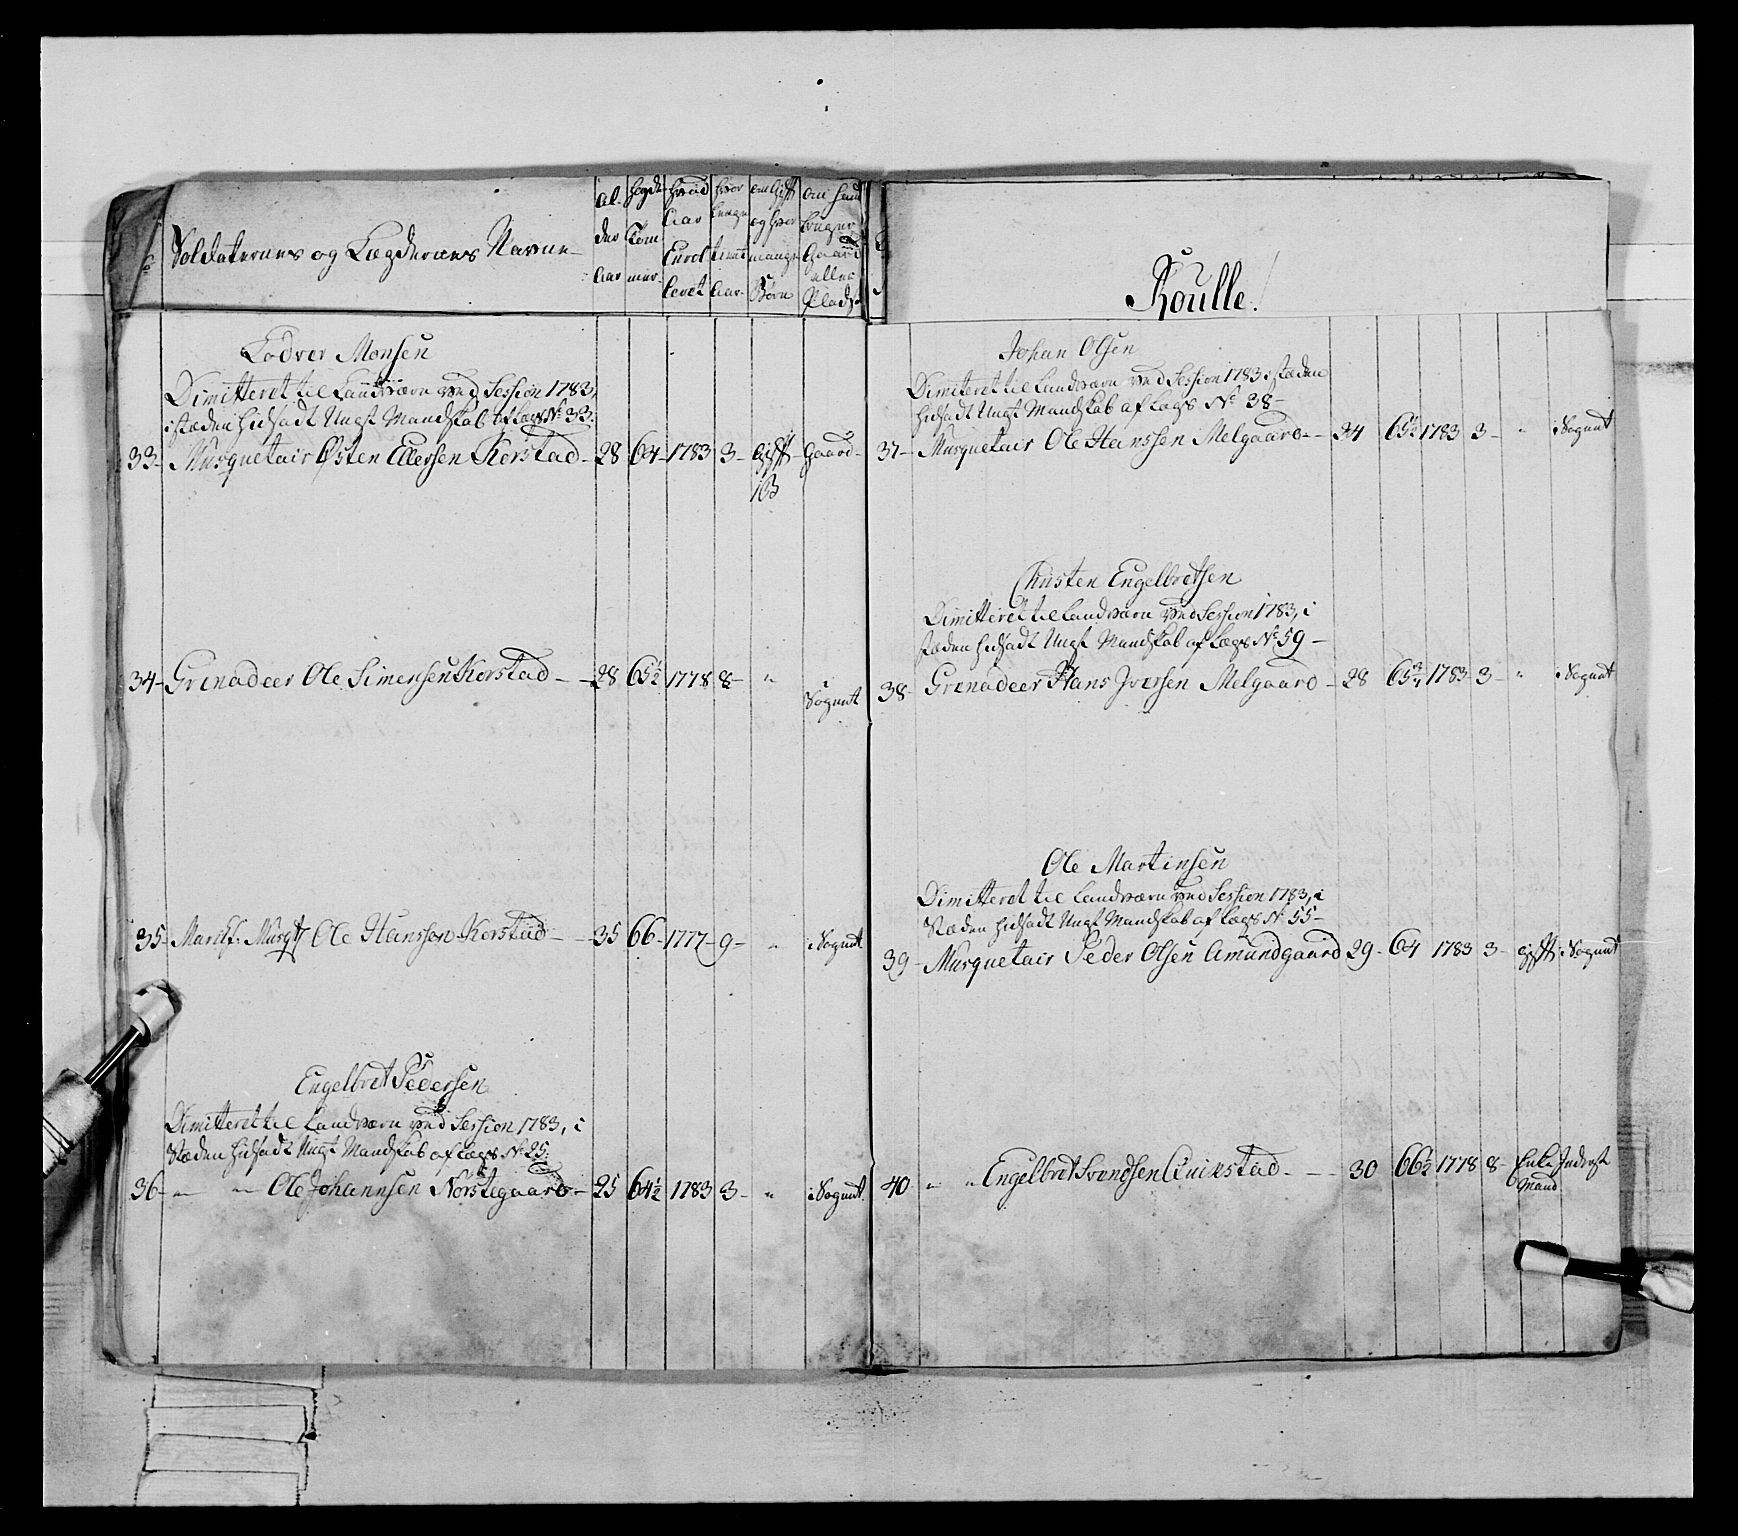 No
Soldaternes og Lægdernes Navne
Al-
der
Aar
Høyde
Tom-
mer
hvad
Aar
Enrol
leret
hvor
lenge
tient
Aar
om Gift
og hvor
mange
Børn
om hand
bruger
Gaard
eller
Plads
Lodver Monsen
Dimitteret til Landværn ved Session 1783,
i stæden hidsadt Ungt Mandskab af Lægs No 33.
33- Musquetair Østen Ellersen Korstad- 28 64- 1783 3- Gift Gaard-
1 B
34- Grenadeer Ole Simensen Korstad - - 28 65½ 1778 8- "
i
Sognet
35- Marchf. Musqtr Ole Hanssen Korstad - - 35 66- 1777- 9- " i Sognet
Engelbret Pedersen
Dimitteret til Landværn ved Session 1783, i
Stæden hidsadt Ungt Mandskab af Lægs No 25.
36- " " Ole Johannsen Norstegaard- 25 64½ 1783 3- " i Sognet
Roulle.
Johan Olsen
Dimitteret til Landværn ved Session 1783 i stæden
hidsadt Ungt Mandskab af Lægs No 38-
37- Musquetair Ole Hanssen Melgaard- - 34 65½ 1783 3- " i Sognet
Christen Engelbretsen
Dimitteret til Landværn ved Session 1783, i
stæden hidsadt Ungt Mandskab af Lægs No 59-
38- Grenadeer Hans Iversen Melgaard- 28 65¾ 1783 3- " i Sognet
Ole Martinsen
Dimitteret til Landværn ved Session 1783, i
Stæden hidsadt Ungt Mandskab af Lægs No 55-
39- Musquetair Peder Olsen Amundgaard 29- 64 1783 3- gift i Sognet
40 " " Engelbret Svendsen Quikstad- - 30 66½ 1778 8- Enke Inderst
Mand